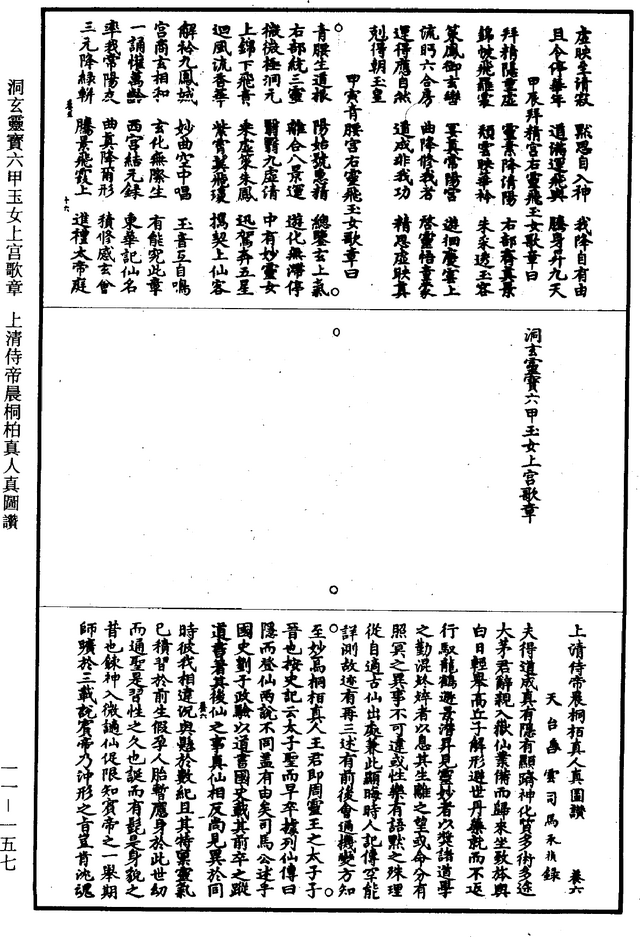 虛映生清寂　默思自入神　我降自有由
且令停華年　道滿運飛輿　騰身昇九天
甲辰拜精宮右靈飛玉女歌章曰
拜精隱重虛　靈景降清陽　右部齊真景
錦帔飛羅裳　頹雲映華袊　朱采透玉容
策鳳御玄巒　宴真常陽宮　遊徊慶雲上
流眄六合房　曲降修我者　啓靈悟童蒙
運得應自然　道成非我功　精思虛映真
剋得朝玉皇
甲寅青腰宮右靈飛玉女歌章曰
青腰生道根　陽始號惠精　總鑒玄上氣
右部統三靈　離合八景運　遊化無滯停
微微極洞元　翳翳九虛清　中有妙靈女
上錦下飛青　乘虛策朱鳳　迅駕奔五星
迴風流香華　紫霄㷼飛瓊　攜契上仙客
解袊九鳳城　妙曲空中唱　玉音互自鳴
宮商玄相和　玄化無際生　有能究此章
一誦懽萬齡　西宮結元録　東華記仙名
率我常陽炁　曲真降爾形　積修感玄會
三元降緑軿　騰景飛霞上　進禮太帝庭
洞玄靈寶六甲玉女上宮歌章
上清侍帝晨桐柏真人真圖讚
天台白雲司馬承禎録
夫得道成真有隱有顯躋神化質多術多途
大茅君辭親入嶽仙業備而歸來坐致茲輿
白日輕舉高丘子解形遯世丹藥就而不返
行馭龍鶴遊景濟昇見靈妙者以奬諸道學
之勸混妷婞者以息其生離之望或命分有
照冥之異事不可違或性樂有語默之殊理
從自適古仙出處兼此顯晦時人記傳罕能
詳測故迹有再三述有前後會通機變方知
至妙焉桐柏真人王君即周靈王之太子子
晉也按史記云太子聖而早卒據列仙傳曰
隱而登仙兩說不同蓋有由矣司馬公述乎
國史劉子政驗以道書國史載其前卒之蹤
道書著其後仙之事與仙相反尚見異於同
時彼我相違況與懸於數紀且其特稟靈氣
已積習於前生假孕人胎暫應身於此世幼
而通聖是習性之久也誕而有髭是身貌之
昔也錬神入微謫仙促限知賓帝之一舉期
師曠於三載說賓帝乃沖形之言豈肯沈魂
洞玄靈寶六甲玉女上宮歌章　上清侍帝晨桐柏真人真圖讚
一一—一五七